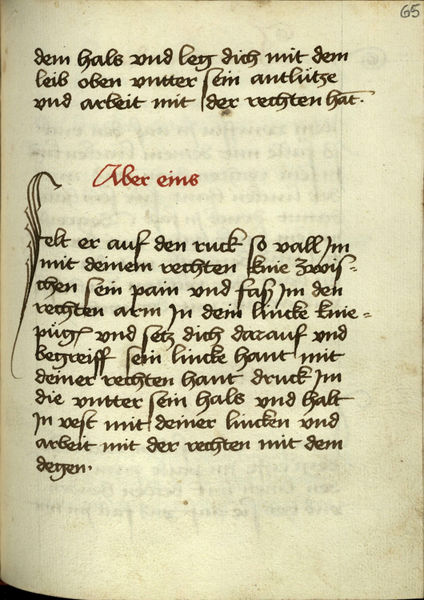 65
dem hals vnd leg dich mit dem
leib oben vntter sein antlütze
vnd arbeit mit der rechten hāt.
Aber eins
Felt er auf den ruck so vall Im
mit deinem rechten knie zwis=
chen sein pain vnd fass Im den
rechten arm In dein lincke knie=
püg vnd setz dich darauf vnd
begreiff sein lincke hant mit
deiner rechten hant druck Im
die vntter sein hals vnd halt
In vest mit deiner lincken vnd
arbeit mit der rechten mit dem
degen.